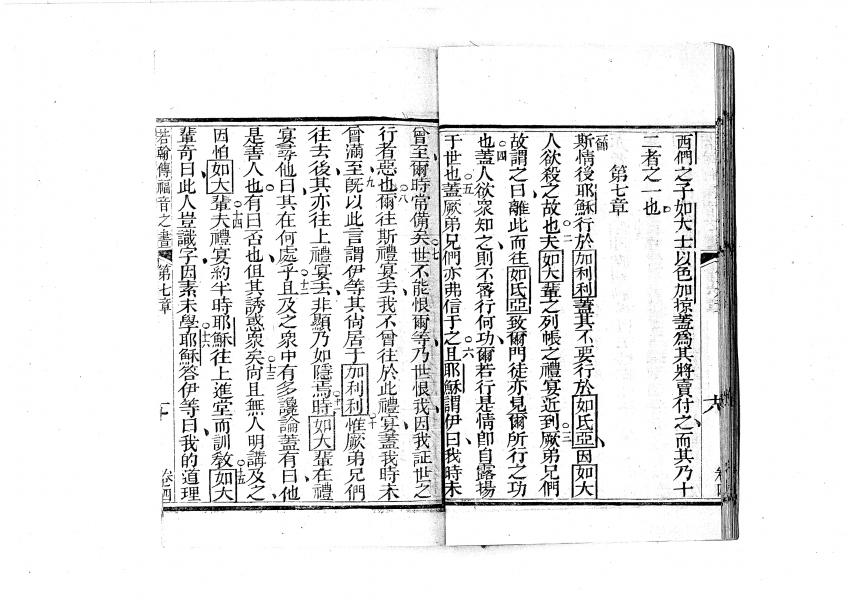 西們之子如大士以色加掠蓋爲其將賣付之而其乃十
二者之一也
第七章
斯情後耶穌行於加利利蓋其不要行於如氏亞因如大
人欲殺之故也○二夫如大輩之列帳之禮宴近到○三厥弟兄們
故謂之曰離此而往如氏亞致爾門徒亦見爾所行之功
○四也蓋人欲衆知之則不密行何功爾若行是情卽自露揚
于世也○五蓋厥弟兄們亦弗信于之○六且耶穌謂伊曰我時未
曾至爾時常備矣○七世不能恨爾等乃世恨我因我証世之
行者惡也○八爾往斯禮宴去我不曾往於此禮宴蓋我時未
曾滿至○九旣以此言謂伊等其尙居于加利利○十惟厥弟兄們
往去後其亦往上禮宴去非顯乃如隱焉○十一時如大輩在禮
宴尋他曰其在何處乎○十二且及之衆中有多讒論蓋有曰他
是善人也有曰否也但其誘惑衆矣○十三尙且無人明講及之
因怕如大輩○十四夫禮宴約半時耶穌往上進堂而訓敎○十五如大
輩奇曰此人豈識字因素未學○十六耶穌答伊等曰我的道理
若翰傳福音之書 第七章 卷四